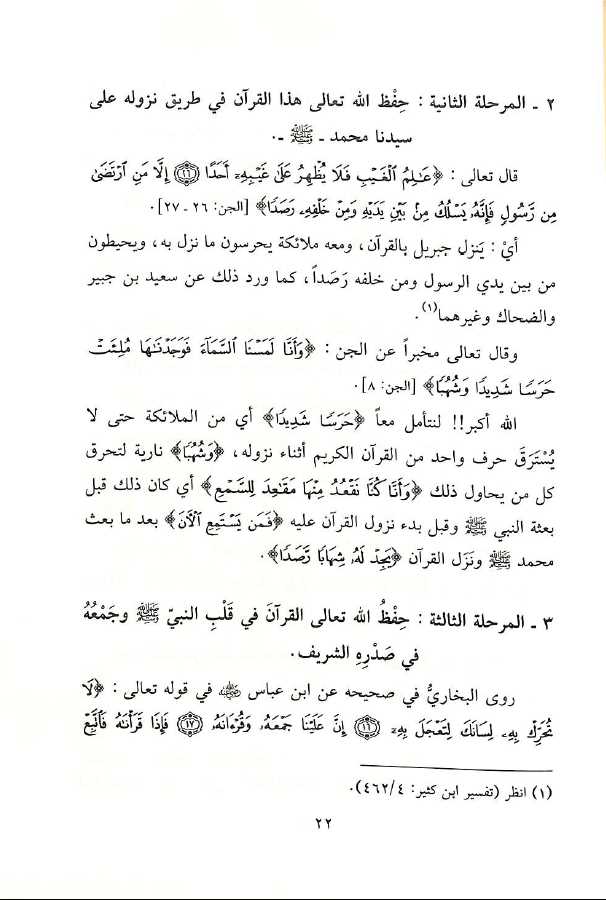 ٢ ـ المرحلة الثانية : حِفْظ الله تعالى هذا القرآن في طريق نزوله على
سيدنا محمد ـ ﷺ ـ.
قال تعالى : ﴿عَـٰلِمُ ٱلْغَيْبِ فَلَا يُظْهِرُ عَلَىٰ غَيْبِهِۦٓ أَحَدًا ۝٢٦ إِلَّا مَنِ ٱرْتَضَىٰ
مِن رَّسُولٍ فَإِنَّهُۥ يَسْلُكُ مِنۢ بَيْنِ يَدَيْهِ وَمِنْ خَلْفِهِۦ رَصَدًا﴾ [الجن: ٢٦ ـ ٢٧].
أيْ : يَنزل جبريل بالقرآن، ومعه ملائكة يحرسون ما نزل به، ويحيطون
من بين يدي الرسول ومن خلفه رَصَداً، كما ورد ذلك عن سعيد بن جبير
والضحاك وغيرهما(١).
وقال تعالى مخبراً عن الجن : ﴿وَأَنَّا لَمَسْنَا ٱلسَّمَآءَ فَوَجَدْنَـٰهَا مُلِئَتْ
حَرَسًا شَدِيدًا وَشُهُبًا﴾ [الجن: ٨].
الله أكبر!! لنتأمل معاً ﴿حَرَسًا شَدِيدًا﴾ أي من الملائكة حتى لا
يُسْتَرَقَ حرف واحد من القرآن الكريم أثناء نزوله، ﴿وَشُهُبًا﴾ نارية لتحرق
كل من يحاول ذلك ﴿وَأَنَّا كُنَّا نَقْعُدُ مِنْهَا مَقَـٰعِدَ لِلسَّمْعِ﴾ أي كان ذلك قبل
بعثة النبي ﷺ وقبل بدء نزول القرآن عليه ﴿فَمَن يَسْتَمِعِ ٱلْآنَ﴾ بعد ما بعث
محمد ﷺ ونَزَل القرآن ﴿يَجِدْ لَهُۥ شِهَابًا رَّصَدًا﴾.
٣ ـ المرحلة الثالثة : حِفْظُ الله تعالى القرآنَ في قَلْبِ النبيّ ﷺ وجَمْعُهُ
في صَدْرِهِ الشريف.
روى البخاريُّ في صحيحه عن ابن عباس رضي الله عنهما في قوله تعالى : ﴿لَا
تُحَرِّكْ بِهِۦ لِسَانَكَ لِتَعْجَلَ بِهِۦٓ ۝١٦ إِنَّ عَلَيْنَا جَمْعَهُۥ وَقُرْءَانَهُۥ ۝١٧ فَإِذَا قَرَأْنَـٰهُ فَٱتَّبِعْ
(١) انظر (تفسير ابن كثير: ٤٦٢/٤).
٢٢